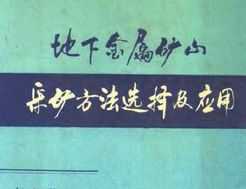 地下金属矿山
采矿方法选择及应用